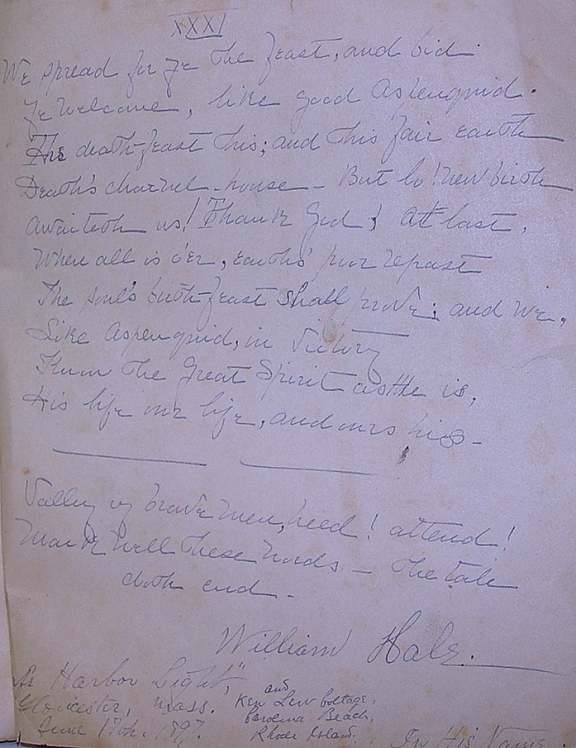 XXXI
We spread for ye the feast, and bid
Ye welcome, like good Aspenquid.
The death-feast this; and this fair earth
Death's charnel-house - But lo! new birth
Awaiteth us! Thank God! At last,
When all is o'er, earths' poor repast
The soul's birth-feast shall prove; and we,
Like Aspenquid, in victory
Know the Great Spirit as He is,
His life our life, and ours his -
Valley of brave men, heed! attend!
Mark well these words - The tale
doth end -
William Hale.
Harbor Light,"
Gloucester, Mass.
June 17th. 1897.
and
Ken Lew Cottage,
Beach,
Rhode Island.
In His Name